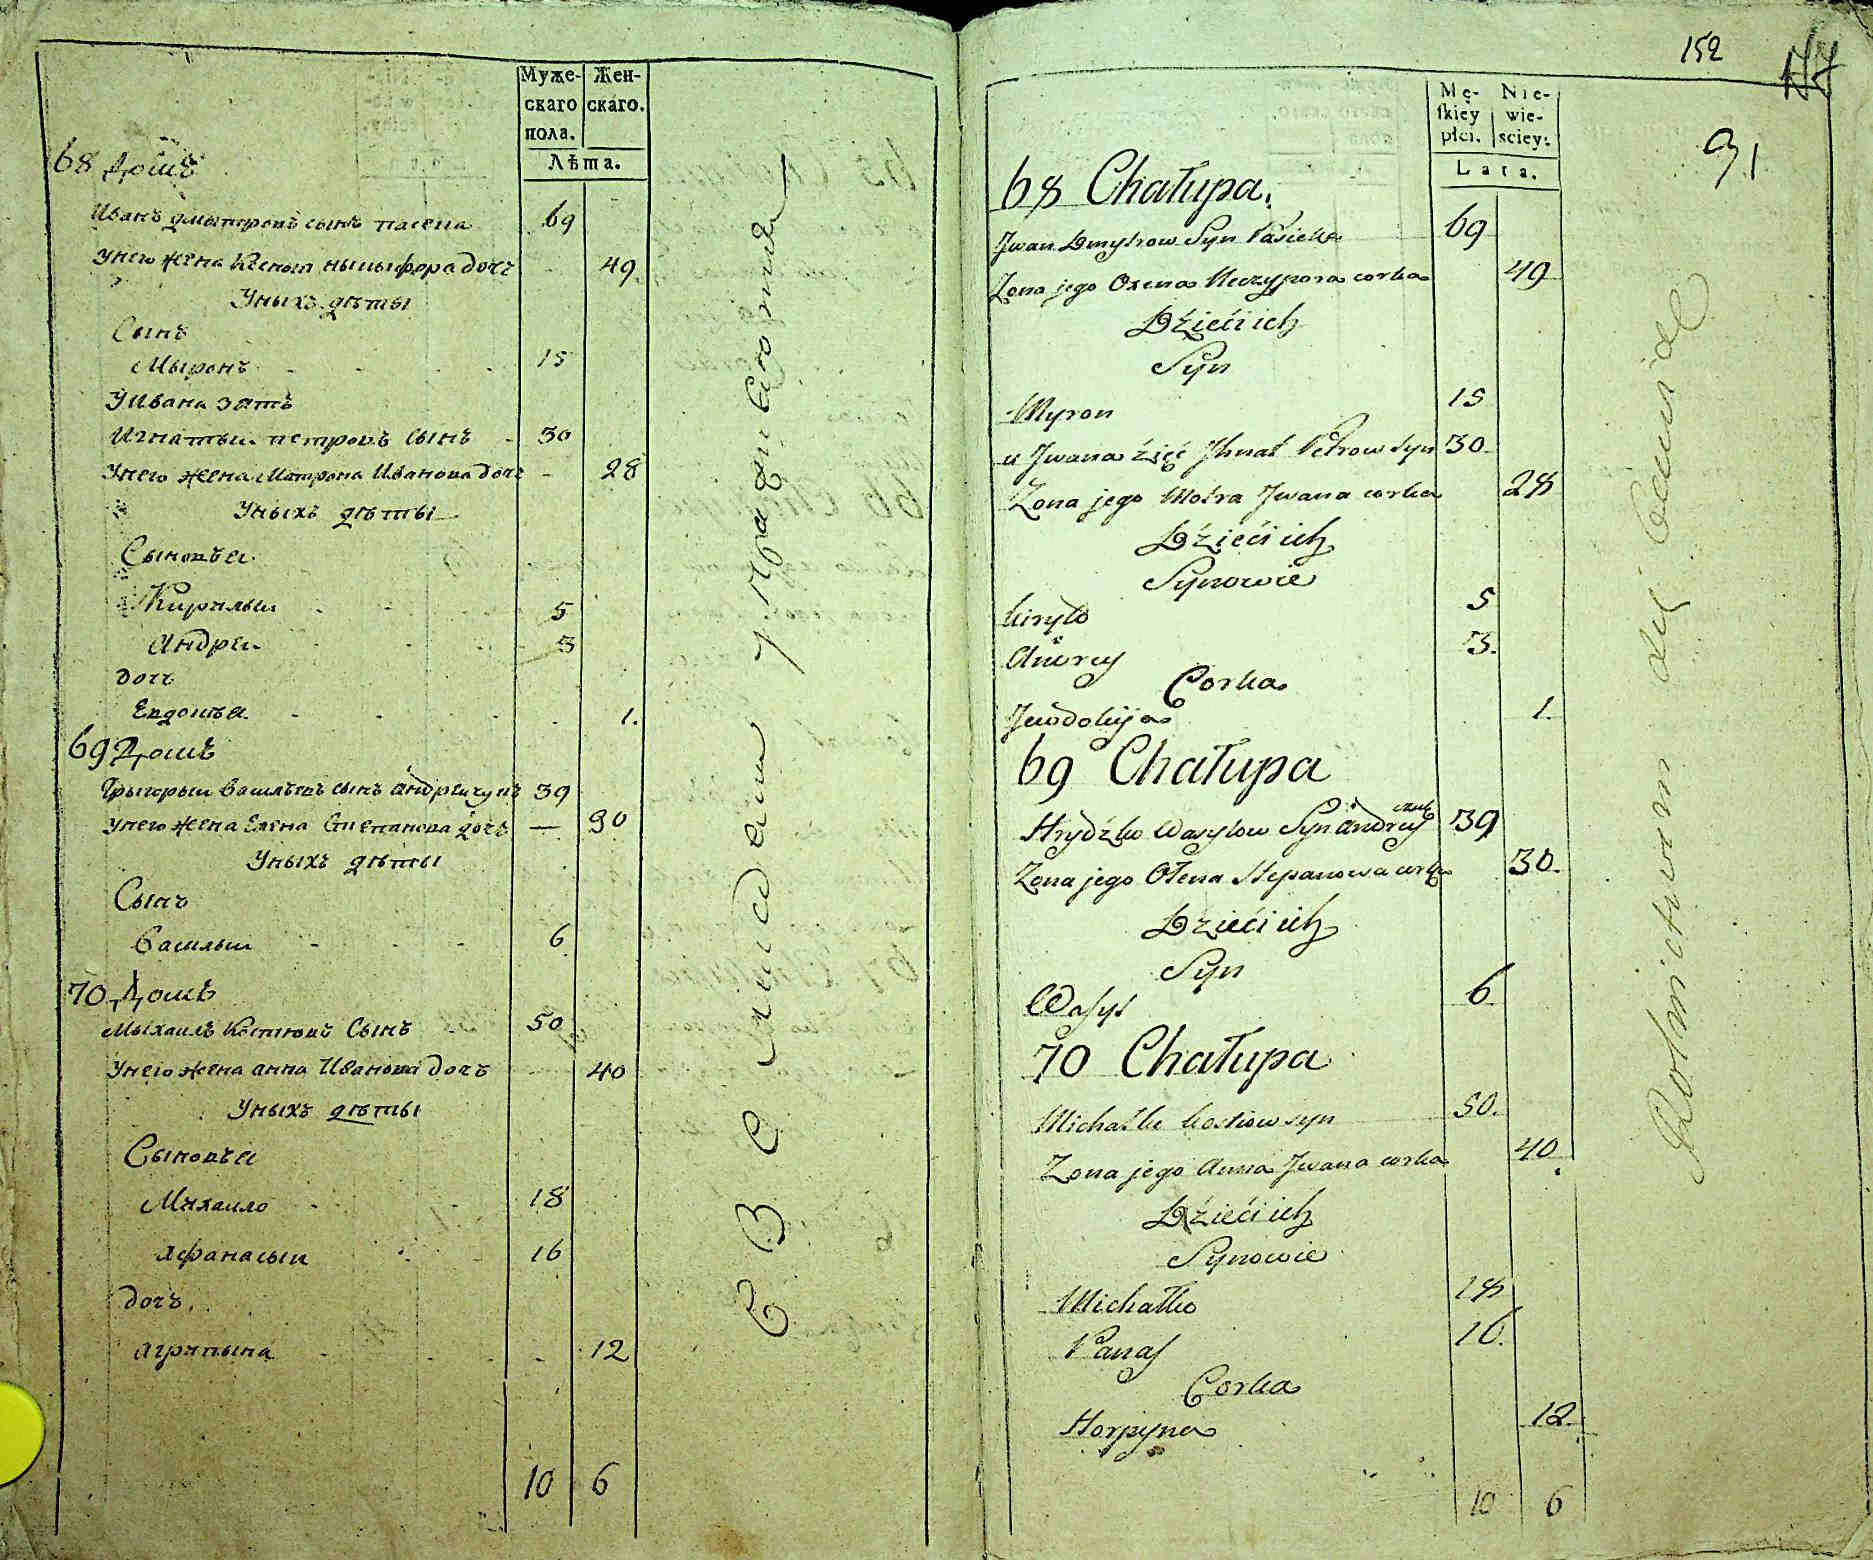 Муже-
скаго
пола.
Жен-
скаго.
Лѣта.
68 Домъ
Иванъ дмытровъ сынъ пасека 69
Унего жена Ксенія ныцыфора дочъ 49
Уныхъ дѣты
Сынъ
Мыронъ 15
У Ивана зять
Игнатыи петровъ сынъ 30
Унего жена Матрона Иванова дочъ — 28
Уныхъ дѣты
Сыновья
Кирилыи 5
Андреи 3
дочъ
Евдокѣя 1.
69 Домъ
Грыгорыи василѣвъ сынъ андреичукъ 39
Унего жена Елена Степанова дочъ — 30
Уныхъ дѣты
Сынъ
Василыи 6
70 Домъ
Мыхаилъ Костювъ Сынъ 50
Унего жена анна Иванова дочъ 40
Уныхъ дѣты
Сыновья
Михаило 18
Афанасыи 16
дочъ
Агрыпына 12
10 6
152
91
Mę-
skiey
płci.
Nie-
wie-
sciey.
Lata.
68 Chałupa.
Jwan Dmytrow Syn Pasieka 69
Zona jego Oxena Neczypora corka 49
Dźieći ich
Syn
Myron 15
u Jwana źięć Jhnat Petrow Syn 30
Zona jego Motra Jwana corka 28
Dźieći ich
Synowie
Kiryło 5
Andrey 3.
Corka
Jewdokija 1.
69 Chałupa
Hrydźko Wasylow Syn Andrey czuk 39
Zona jego Ołena Stepanowa corka 30.
Dzieći ich
Syn
Wasyl 6
70 Chałupa
Michałko Kostiow syn 50.
Zona jego Anna Jwana corka 40
Dźieći ich
Synowie
Michałko 18
Panas 16.
Corka
Horpyna 12
10 6